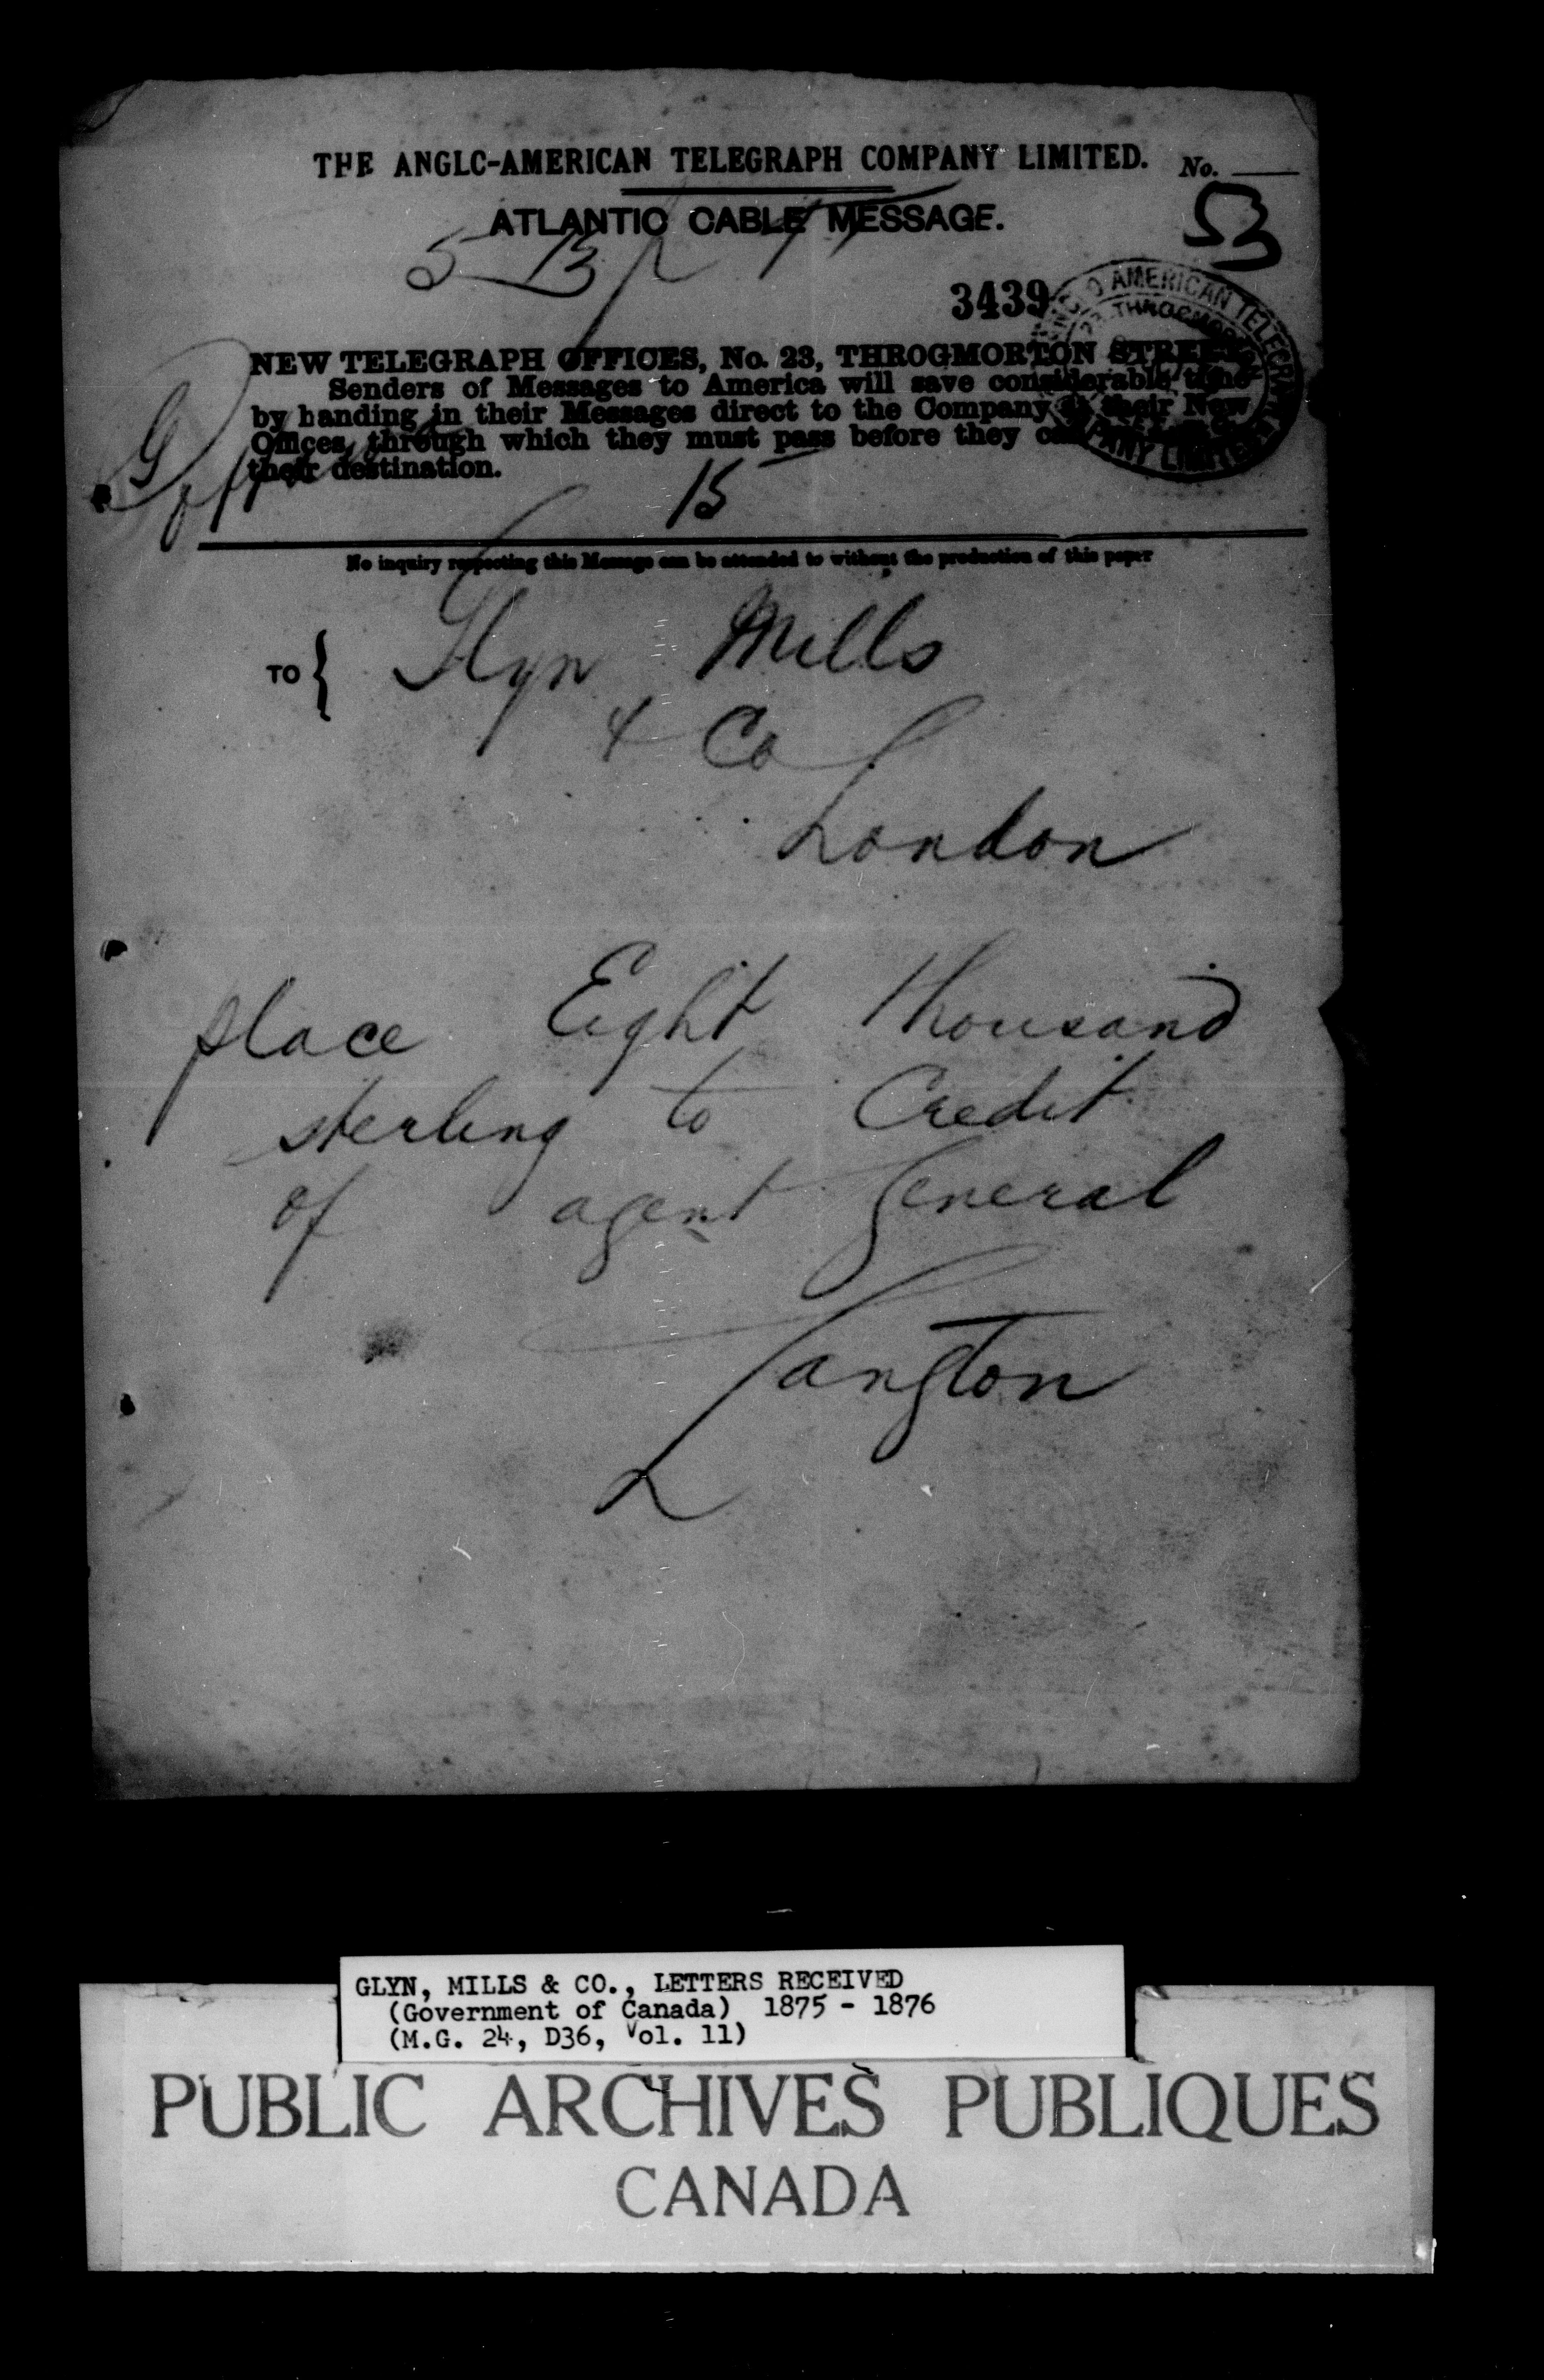 THE ANGLO-AMERICAN TELEGRAPH COMPANY LIMITED. No.
53
ATLANTIC CABLE MESSAGE.
3439
AMERICAN TELEGRAPH
NEW TELEGRAPH OFFICES, No. 23, THROGMORTON STREET
Senders of Messages to America will save considerable time
by handing in their Messages direct to the Company at their New
Offices, through which they must pass before they
their destination.
15
No inquiry respecting this Message can be attended to without the production of this paper
TO { Glyn Mills
& Co
London
place Eight thousand
sterling to Credit
of agent General
Langton
GLYN, MILLS & CO., LETTERS RECEIVED
(Government of Canada) 1875 - 1876
(M.G. 24, D36, Vol. 11)
PUBLIC ARCHIVES PUBLIQUES
CANADA